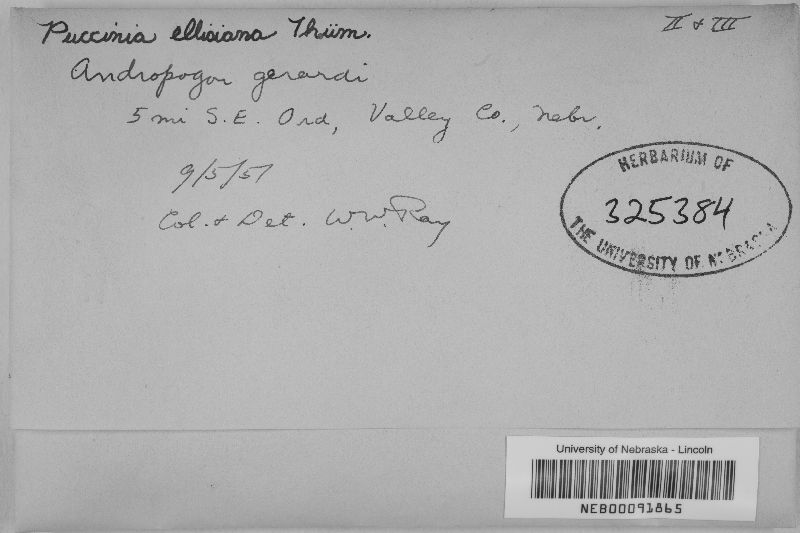 Puccinia ellisiana Thüm.
II & III
Andropogon gerardi
5 mi S.E. Ord, Valley Co., Nebr.
9/5/51
Col. & Det. W.W. Ray
HERBARIUM OF
325384
THE UNIVERSITY OF NEBRASKA
University of Nebraska - Lincoln
NEB00091865